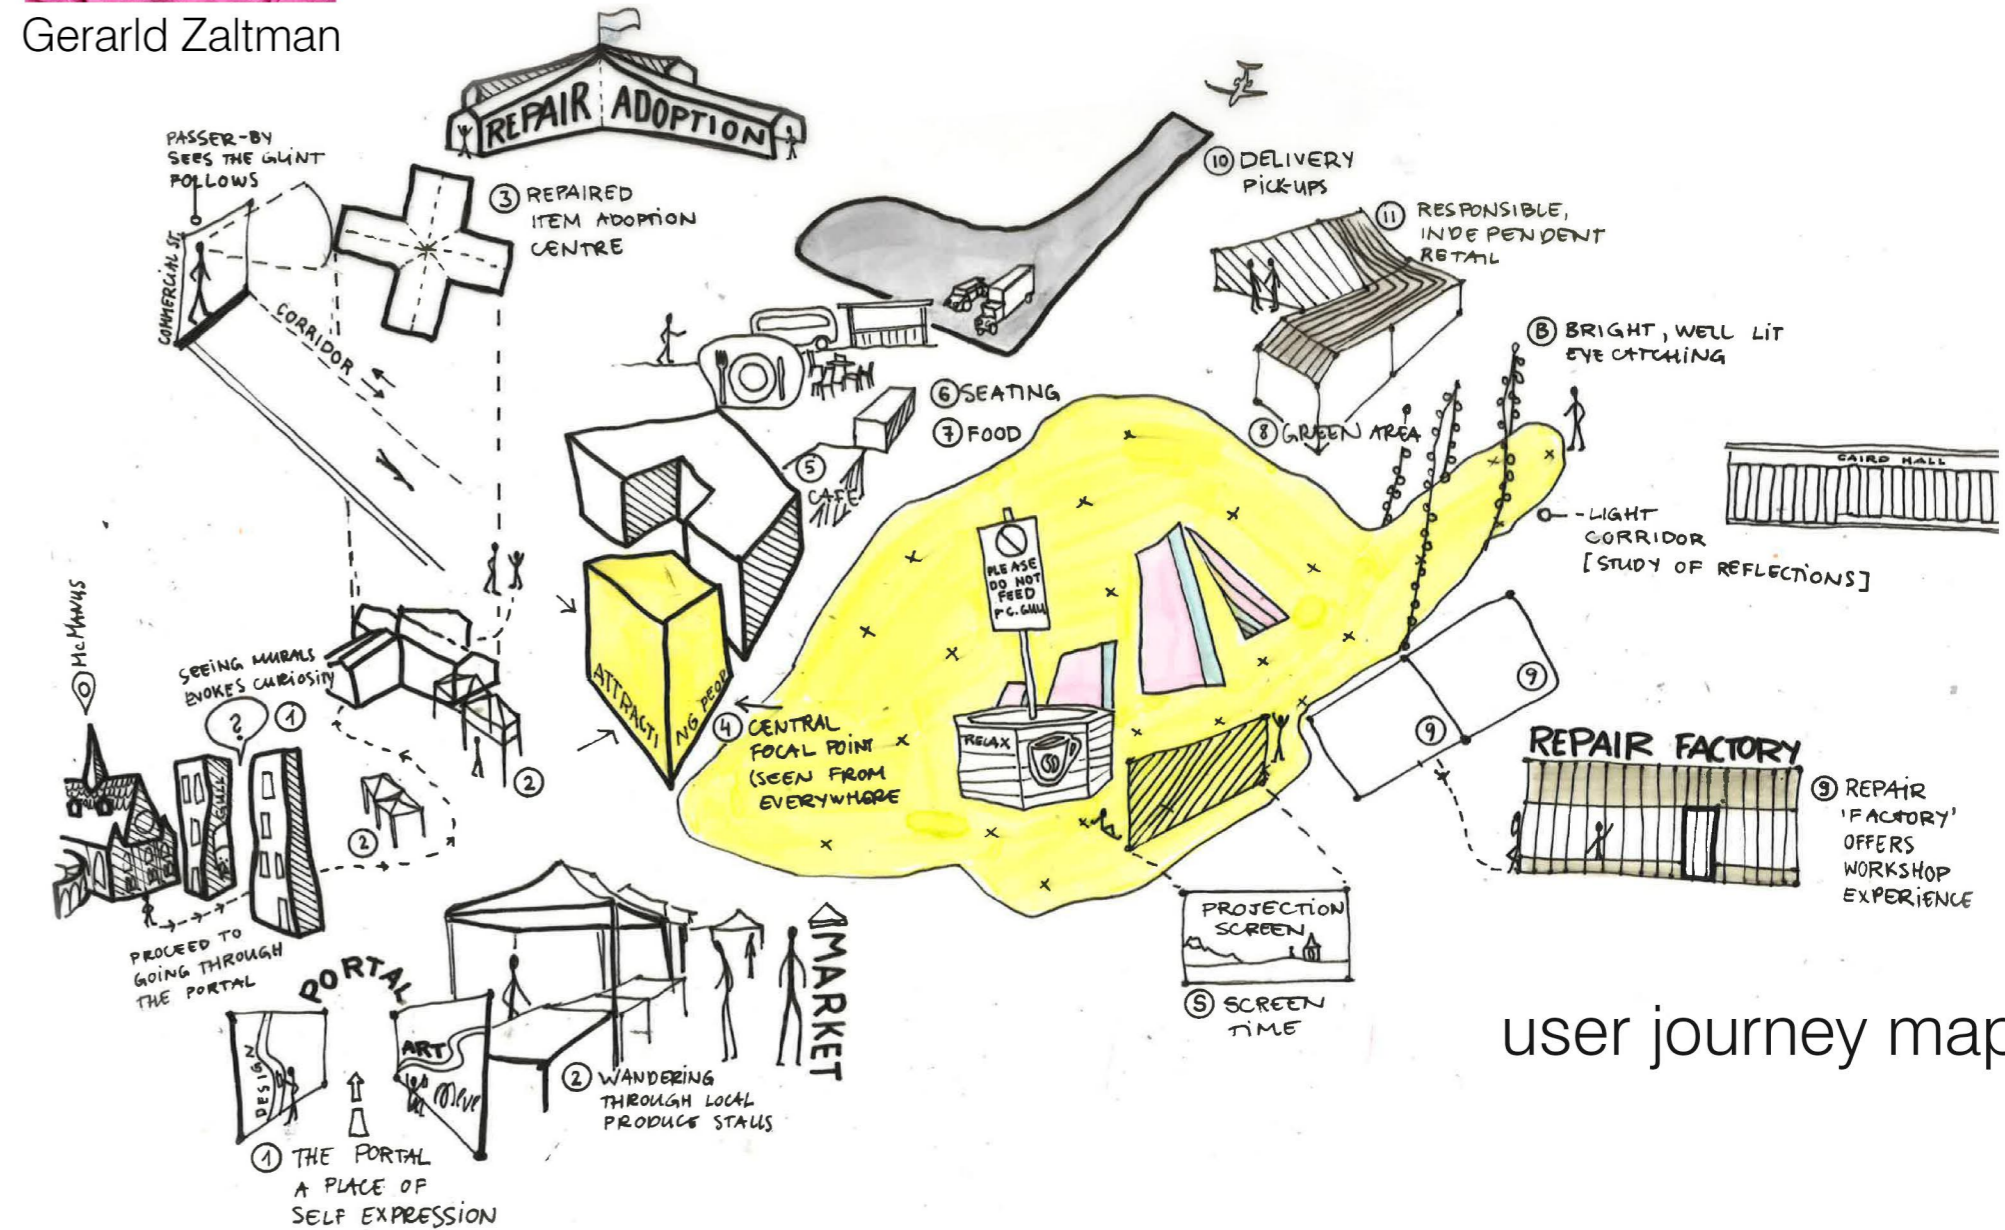 Gerarld Zaltman
REPAIR ADOPTION
PASSER-BY
SEES THE GLINT
FOLLOWS
COMMERCIAL ST.
CORRIDOR
3 REPAIRED
ITEM ADOPTION
CENTRE
10 DELIVERY
PICK-UPS
11 RESPONSIBLE,
INDEPENDENT
RETAIL
B BRIGHT, WELL LIT
EYE CATCHING
6 SEATING
7 FOOD
5
CAFE
8 GREEN AREA
CAIRD HALL
-LIGHT
CORRIDOR
[STUDY OF REFLECTIONS]
PLEASE
DO NOT
FEED
McMANUS
SEEING MURALS
EVOKES CURIOSITY
?
1
2
2
ATTRACTI
NG PEOP
4 CENTRAL
FOCAL POINT
(SEEN FROM
EVERYWHERE
RELAX
9
9
REPAIR FACTORY
9 REPAIR
'FACTORY'
OFFERS
WORKSHOP
EXPERIENCE
PROCEED TO
GOING THROUGH
THE PORTAL
PORTAL
DESIGN
ART
MARKET
PROJECTION
SCREEN
S SCREEN
TIME
2 WANDERING
THROUGH LOCAL
PRODUCE STALLS
1 THE PORTAL
A PLACE OF
SELF EXPRESSION
user journey map